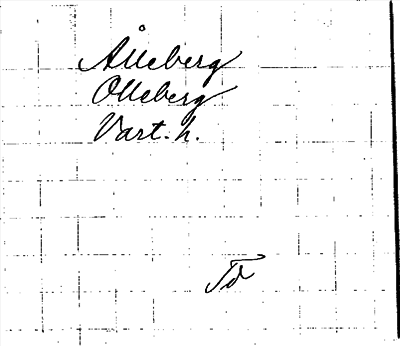 Ålleberg
Olleberg
Vart. h.